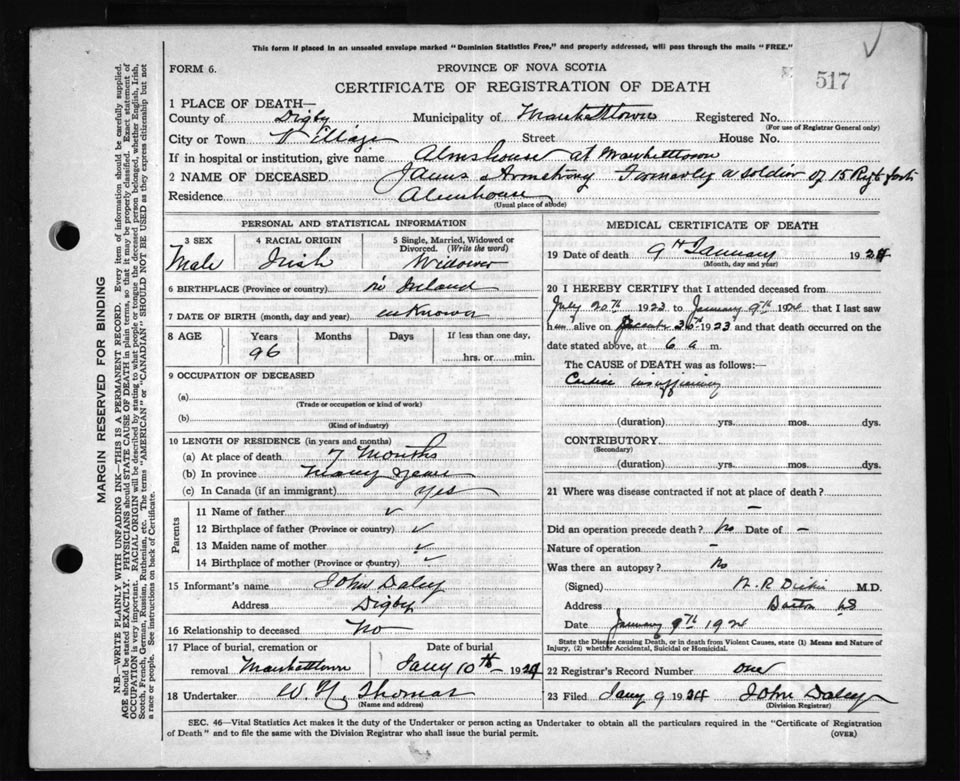 This form if placed in an unsealed envelope marked "Dominion Statistics Free," and properly addressed, will pass through the mails "FREE."
FORM 6.
PROVINCE OF NOVA SCOTIA
517
CERTIFICATE OF REGISTRATION OF DEATH
1 PLACE OF DEATH—
County of Digby Municipality of Marshalltown Registered No.
(For use of Registrar General only)
City or Town Village Street House No.
If in hospital or institution, give name Almshouse at Marshalltown
2 NAME OF DECEASED. James Armstrong Formerly a soldier of 15 Regt
Residence Almhouse
(Usual place of abode)
PERSONAL AND STATISTICAL INFORMATION
3 SEX 4 RACIAL ORIGIN 5 Single, Married, Widowed or Divorced. (Write the word)
Male Irish Widower
6 BIRTHPLACE (Province or country) in Ireland
7 DATE OF BIRTH (month, day and year) unknown
8 AGE Years Months Days If less than one day,
96 hrs. or min.
9 OCCUPATION OF DECEASED
(a)
(Trade or occupation or kind of work)
(b)
(Kind of industry)
10 LENGTH OF RESIDENCE (in years and months)
(a) At place of death 7 Months
(b) In province many years
(c) In Canada (if an immigrant) yes
Parents
11 Name of father ✓
12 Birthplace of father (Province or country) ✓
13 Maiden name of mother ✓
14 Birthplace of mother (Province or country) ✓
15 Informant's name John Daley
Address Digby
16 Relationship to deceased No
17 Place of burial, cremation or removal Marshalltown
Date of burial
Jany 10th 1924
18 Undertaker W H Thomas
(Name and address)
MEDICAL CERTIFICATE OF DEATH
19 Date of death 9th January 1924
(Month, day and year)
20 I HEREBY CERTIFY that I attended deceased from
July 20th 1923 to January 9th 1924 that I last saw
him alive on December 30th 1923 and that death occurred on the
date stated above, at 6 a m.
The CAUSE OF DEATH was as follows:—
insufficiency
(duration) yrs. mos. dys.
CONTRIBUTORY
(Secondary)
(duration) yrs. mos. dys.
21 Where was disease contracted if not at place of death?
—
Did an operation precede death? No Date of —
Nature of operation —
Was there an autopsy? No
(Signed) M.D.
Address Barton NS
Date January 9th 1924
State the Disease causing Death, or in death from Violent Causes, state (1) Means and Nature of Injury, (2) whether Accidental, Suicidal or Homicidal.
22 Registrar's Record Number one
23 Filed Jany 9 1924 John Daley
(Division Registrar)
SEC. 46—Vital Statistics Act makes it the duty of the Undertaker or person acting as Undertaker to obtain all the particulars required in the "Certificate of Registration
of Death" and to file the same with the Division Registrar who shall issue the burial permit.
(OVER)
MARGIN RESERVED FOR BINDING
N.B.—WRITE PLAINLY WITH UNFADING INK—THIS IS A PERMANENT RECORD. Every item of information should be carefully supplied.
AGE should be stated EXACTLY. PHYSICIANS should STATE CAUSE OF DEATH in plain terms, so that it may be properly classified. Exact statement of
OCCUPATION is very important. RACIAL ORIGIN will be described by stating to what people or tongue the deceased person belonged, whether English, Irish,
Scotch, French, German, Russian, Ruthenian, etc. The terms "AMERICAN" or "CANADIAN" SHOULD NOT BE USED as they express citizenship but not
a race or people. See instructions on back of Certificate.